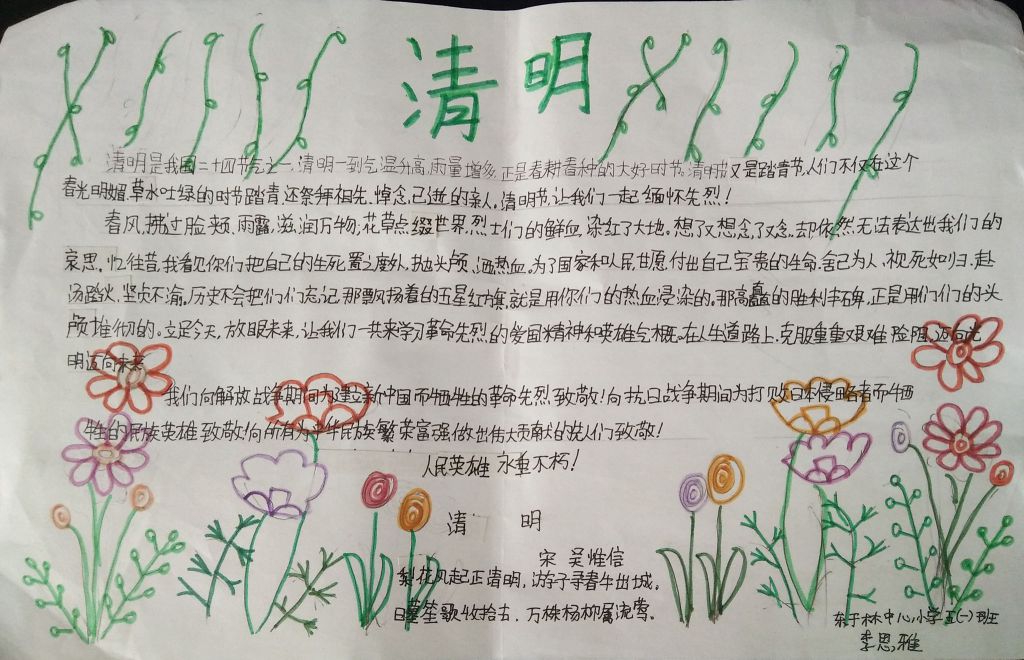 清明
清明是我国二十四节气之一,清明一到气温升高,雨量增多,正是春耕春种的大好时节。清明节又是踏青节,人们不仅在这个
春光明媚,草水吐绿的时节踏青,还祭拜祖先,悼念已逝的亲人。清明节,让我们一起缅怀先烈!
春风拂过脸颊,雨露滋润万物,花草点缀世界,烈士们的鲜血,染红了大地。想了又想,念了又念,却依然无法表达出我们的
哀思。忆往昔,我看见你们把自己的生死置之度外,抛头颅,洒热血。为了国家和人民甘愿付出自己宝贵的生命,舍己为人,视死如归,赴
汤蹈火,坚贞不渝。历史不会把们们忘记,那飘扬着的五星红旗,就是用你们的热血浸染的。那高矗的胜利丰碑,正是用们们的头
颅堆彻的。立足今天,放眼未来,让我们一共来学习革命先烈的爱国精神和英雄气概。在人生道路上,克服重重艰难险阻,迈向光
明迈向未来
我们向解放战争期间为建立新中国而牺牲的革命先烈致敬!向抗日战争期间为打败日本侵略者而牺
牲的民族英雄致敬!向所有为中华民族繁荣富强做出伟大贡献的人们致敬!
人民英雄 永垂不朽!
清 明
宋 吴惟信
梨花风起正清明,访子寻春半出城。
日暮笙歌收拾去,万株杨柳属流莺。
林中心小学五(一)班
李思雅